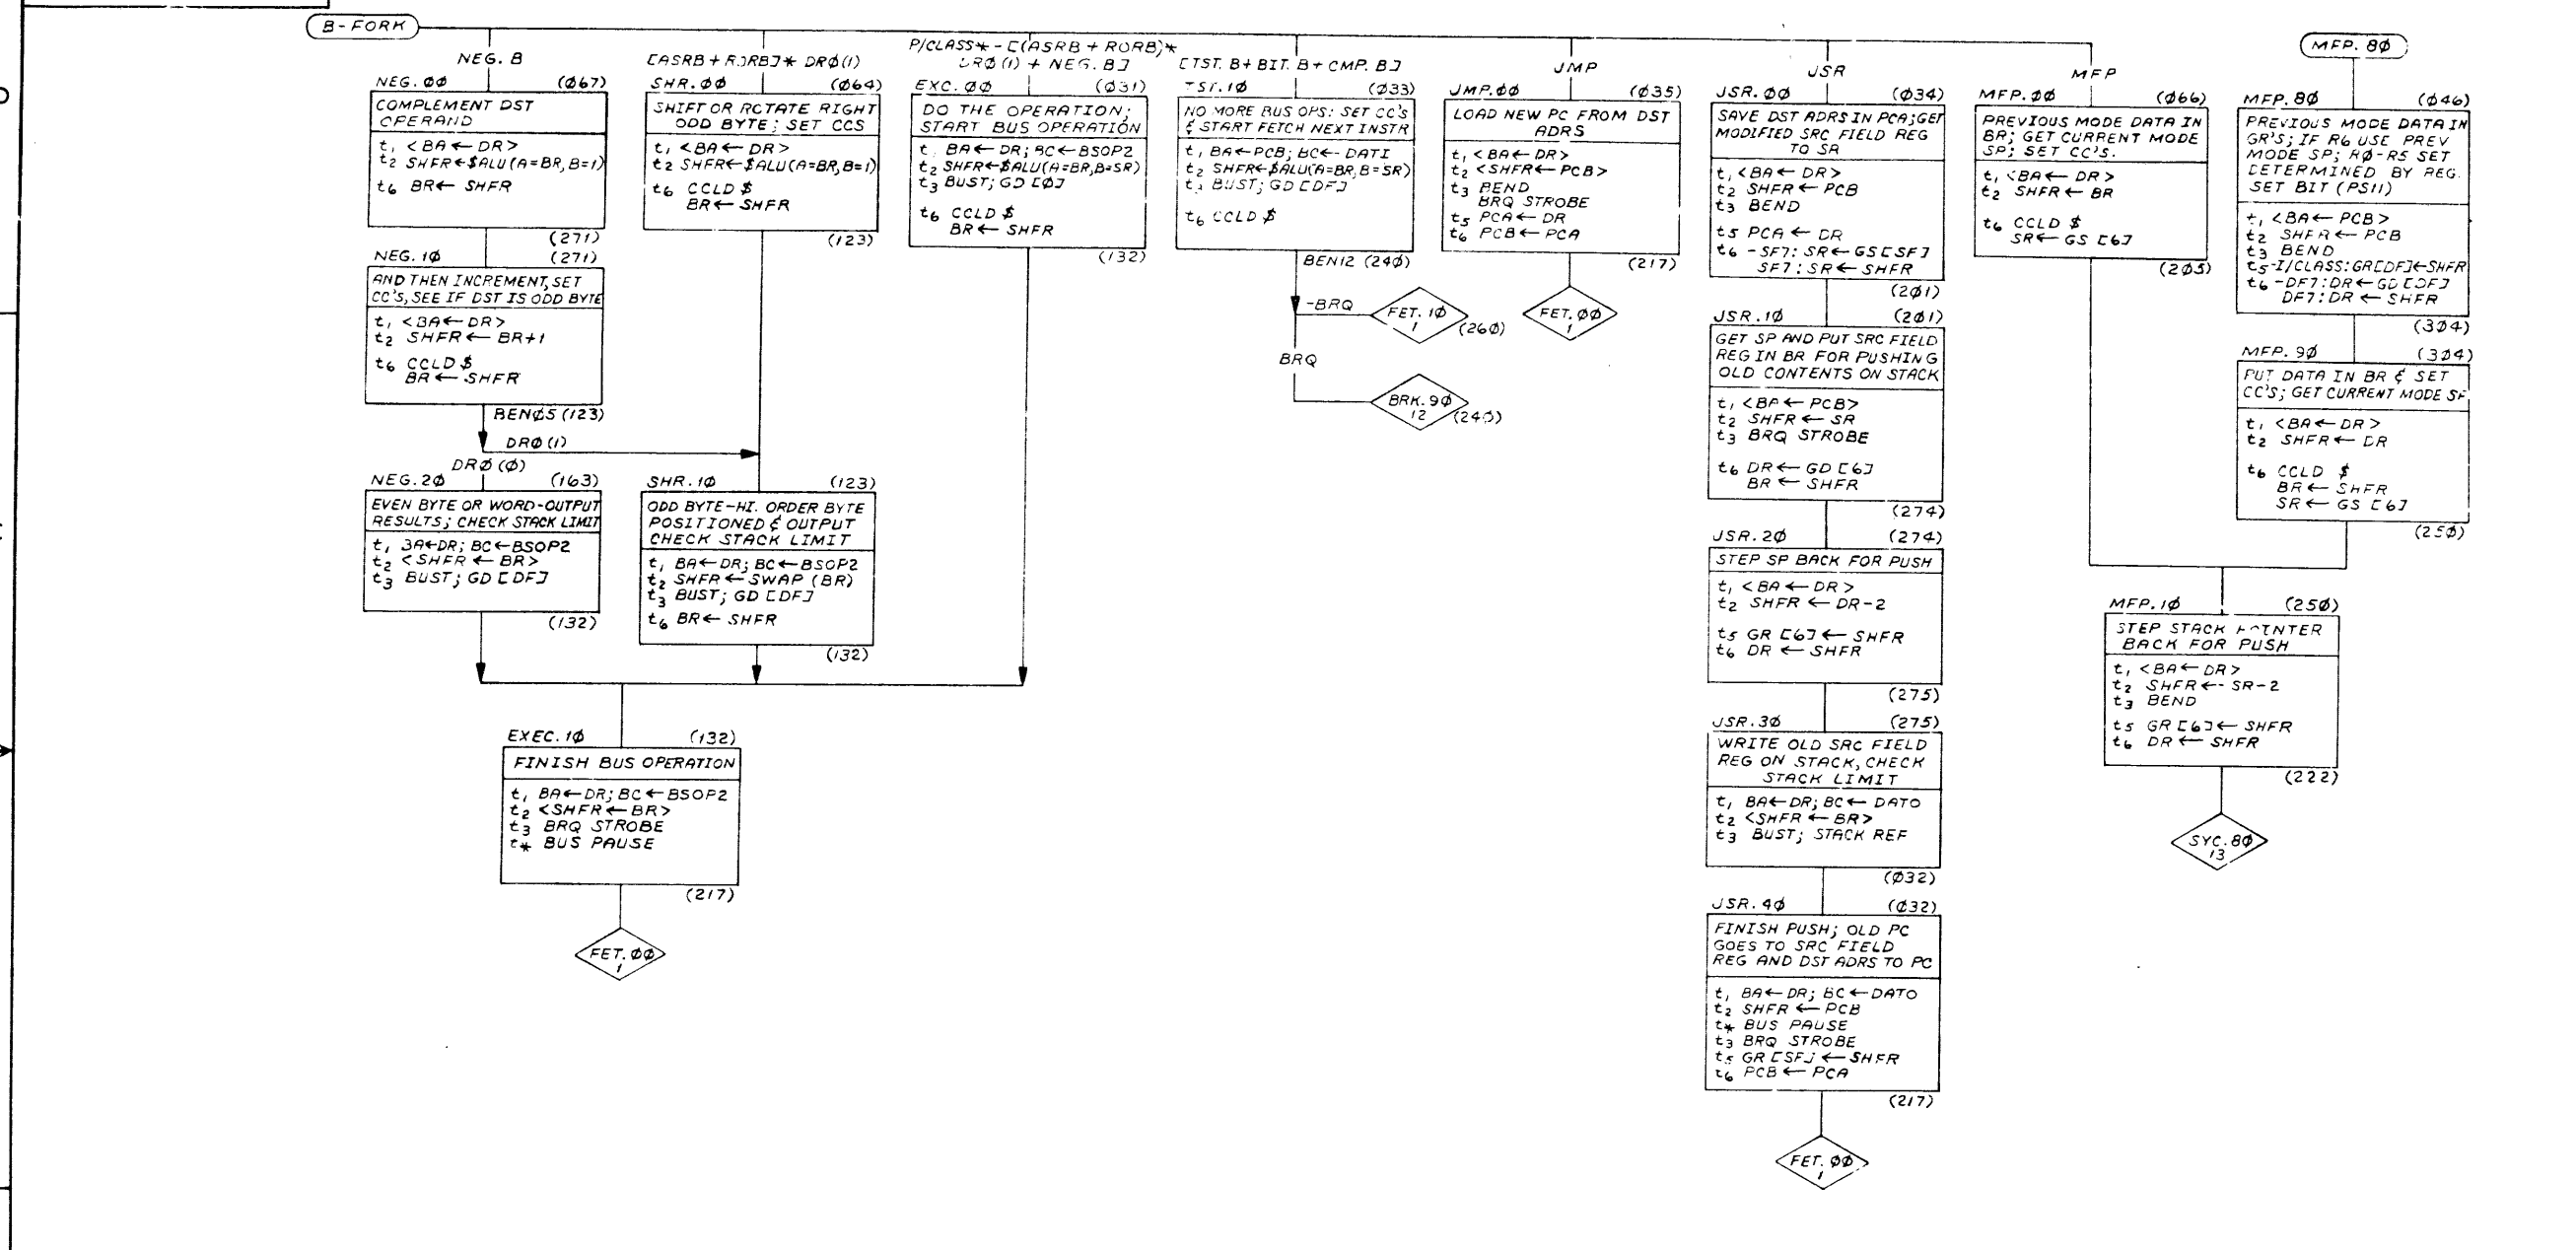 B-FORK
NEG. B
NEG.ØØ (Ø67)
COMPLEMENT DST
OPERAND
t1 <BA←DR>
t2 SHFR←$ALU(A=BR,B=1)
t6 BR←SHFR
(271)
NEG.1Ø (271)
AND THEN INCREMENT, SET
CC'S, SEE IF DST IS ODD BYTE
t1 <BA←DR>
t2 SHFR←BR+1
t6 CCLD $
BR←SHFR
BENØ5 (123)
DRØ(1)
DRØ(Ø)
NEG.2Ø (163)
EVEN BYTE OR WORD-OUTPUT
RESULTS; CHECK STACK LIMIT
t1 BA←DR; BC←BSOP2
t2 <SHFR←BR>
t3 BUST; GD [DF]
(132)
[ASRB + RORB]* DRØ(1)
SHR.ØØ (Ø64)
SHIFT OR ROTATE RIGHT
ODD BYTE; SET CCS
t1 <BA←DR>
t2 SHFR←$ALU(A=BR,B=1)
t6 CCLD $
BR←SHFR
(123)
SHR.1Ø (123)
ODD BYTE-HI. ORDER BYTE
POSITIONED & OUTPUT
CHECK STACK LIMIT
t1 BA←DR; BC←BSOP2
t2 SHFR←SWAP (BR)
t3 BUST; GD [DF]
t6 BR←SHFR
(132)
P/CLASS*-[(ASRB + RORB)*
DRØ(1) + NEG. B]
EXC.ØØ (Ø31)
DO THE OPERATION;
START BUS OPERATION
t1 BA←DR; BC←BSOP2
t2 SHFR←$ALU(A=BR,B=SR)
t3 BUST; GD [Ø]
t6 CCLD $
BR←SHFR
(132)
EXEC.1Ø (132)
FINISH BUS OPERATION
t1 BA←DR; BC←BSOP2
t2 <SHFR←BR>
t3 BRQ STROBE
t* BUS PAUSE
(217)
FET.ØØ
1
[TST. B + BIT. B + CMP. B]
TST.1Ø (Ø33)
NO MORE BUS OPS: SET CC'S
& START FETCH NEXT INSTR
t1 BA←PCB; BC←DATI
t2 SHFR←$ALU(A=BR,B=SR)
t3 BUST; GD [DF]
t6 CCLD $
BEN12 (24Ø)
-BRQ
FET.1Ø
1
(26Ø)
BRQ
BRK.9Ø
12
JMP
JMP.ØØ (Ø35)
LOAD NEW PC FROM DST
ADRS
t1 <BA←DR>
t2 <SHFR←PCB>
t3 BEND
BRQ STROBE
t5 PCA←DR
t6 PCB←PCA
(217)
FET.ØØ
1
JSR
JSR.ØØ (Ø34)
SAVE DST ADRS IN PCA; GET
MODIFIED SRC FIELD REG
TO SR
t1 <BA←DR>
t2 SHFR←PCB
t3 BEND
t5 PCA←DR
t6 -SF7: SR←GS[SF]
SF7: SR←SHFR
(2Ø1)
JSR.1Ø (2Ø1)
GET SP AND PUT SRC FIELD
REG IN BR FOR PUSHING
OLD CONTENTS ON STACK
t1 <BA←PCB>
t2 SHFR←SR
t3 BRQ STROBE
t6 DR←GD [6]
BR←SHFR
(274)
JSR.2Ø (274)
STEP SP BACK FOR PUSH
t1 <BA←DR>
t2 SHFR←DR-2
t5 GR [6]←SHFR
t6 DR←SHFR
(275)
JSR.3Ø (275)
WRITE OLD SRC FIELD
REG ON STACK, CHECK
STACK LIMIT
t1 BA←DR; BC←DATO
t2 <SHFR←BR>
t3 BUST; STACK REF
(Ø32)
JSR.4Ø (Ø32)
FINISH PUSH; OLD PC
GOES TO SRC FIELD
REG AND DST ADRS TO PC
t1 BA←DR; BC←DATO
t2 SHFR←PCB
t* BUS PAUSE
t3 BRQ STROBE
t5 GR [SF]←SHFR
t6 PCB←PCA
(217)
FET.ØØ
1
MFP
MFP.ØØ (Ø66)
PREVIOUS MODE DATA IN
BR; GET CURRENT MODE
SP; SET CC'S.
t1 <BA←DR>
t2 SHFR←BR
t6 CCLD $
SR←GS [6]
MFP.8Ø
MFP.8Ø (Ø46)
PREVIOUS MODE DATA IN
GR'S; IF R6 USE PREV
MODE SP; RØ-R5 SET
DETERMINED BY REG.
SET BIT (PS11)
t1 <BA←PCB>
t2 SHFR←PCB
t3 BEND
t5 -I/CLASS: GR[DF]←SHFR
t6 -DF7: DR←GD [DF]
DF7: DR←SHFR
(3Ø4)
MFP.9Ø (3Ø4)
PUT DATA IN BR & SET
CC'S; GET CURRENT MODE SP
t1 <BA←DR>
t2 SHFR←DR
t6 CCLD $
BR←SHFR
SR←GS [6]
(25Ø)
MFP.1Ø (25Ø)
STEP STACK POINTER
BACK FOR PUSH
t1 <BA←DR>
t2 SHFR←SR-2
t3 BEND
t5 GR [6]←SHFR
t6 DR←SHFR
(222)
SYC.8Ø
13